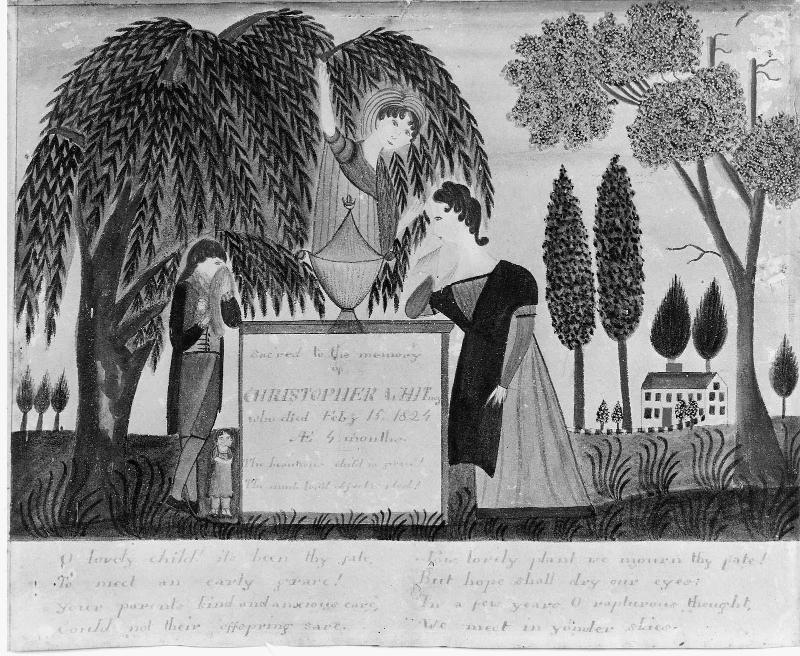 Sacred to the memory
of
CHRISTOPHER WHITing
who died Feby 15 1824
Æ 4 months
The beauteous child is gone!
The much lov'd object's fled!
O lovely child! its been thy fate,
To meet an early grave!
Your parents kind and anxious care,
Could not their offspring save.
lovely plant we mourn thy fate!
But hope shall dry our eyes:
In a few years O rapturous thought,
We meet in yonder skies.